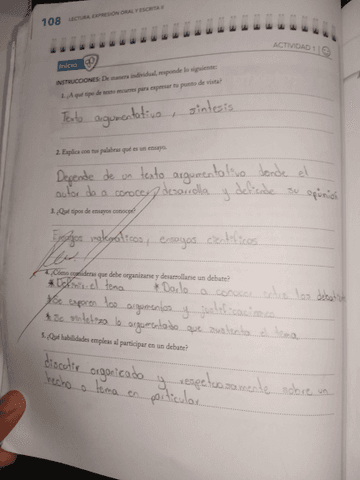 108
LECTURA, EXPRESIÓN ORAL Y ESCRITA II
ACTIVIDAD 1
Inicio
INSTRUCCIONES: De manera individual, responde lo siguiente:
1. ¿A qué tipo de texto recurres para expresar tu punto de vista?
Texto argumentativo, sintesis
2. Explica con tus palabras qué es un ensayo.
Depende de un texto argumentativo donde el
autor da a conocer, desarrolla y defiende su opinion
3. ¿Qué tipos de ensayos conoces?
Ensayos matematicos, ensayos cientificos
4. ¿Cómo consideras que debe organizarse y desarrollarse un debate?
* Definir el tema * Darlo a conocer entre los
* Se exponen los argumentos y justificaciones
* Se sintetiza lo argumentado que sustenta el tema
5. ¿Qué habilidades empleas al participar en un debate?
discutir organizado y respetuosamente sobre un
hecho o tema en particular